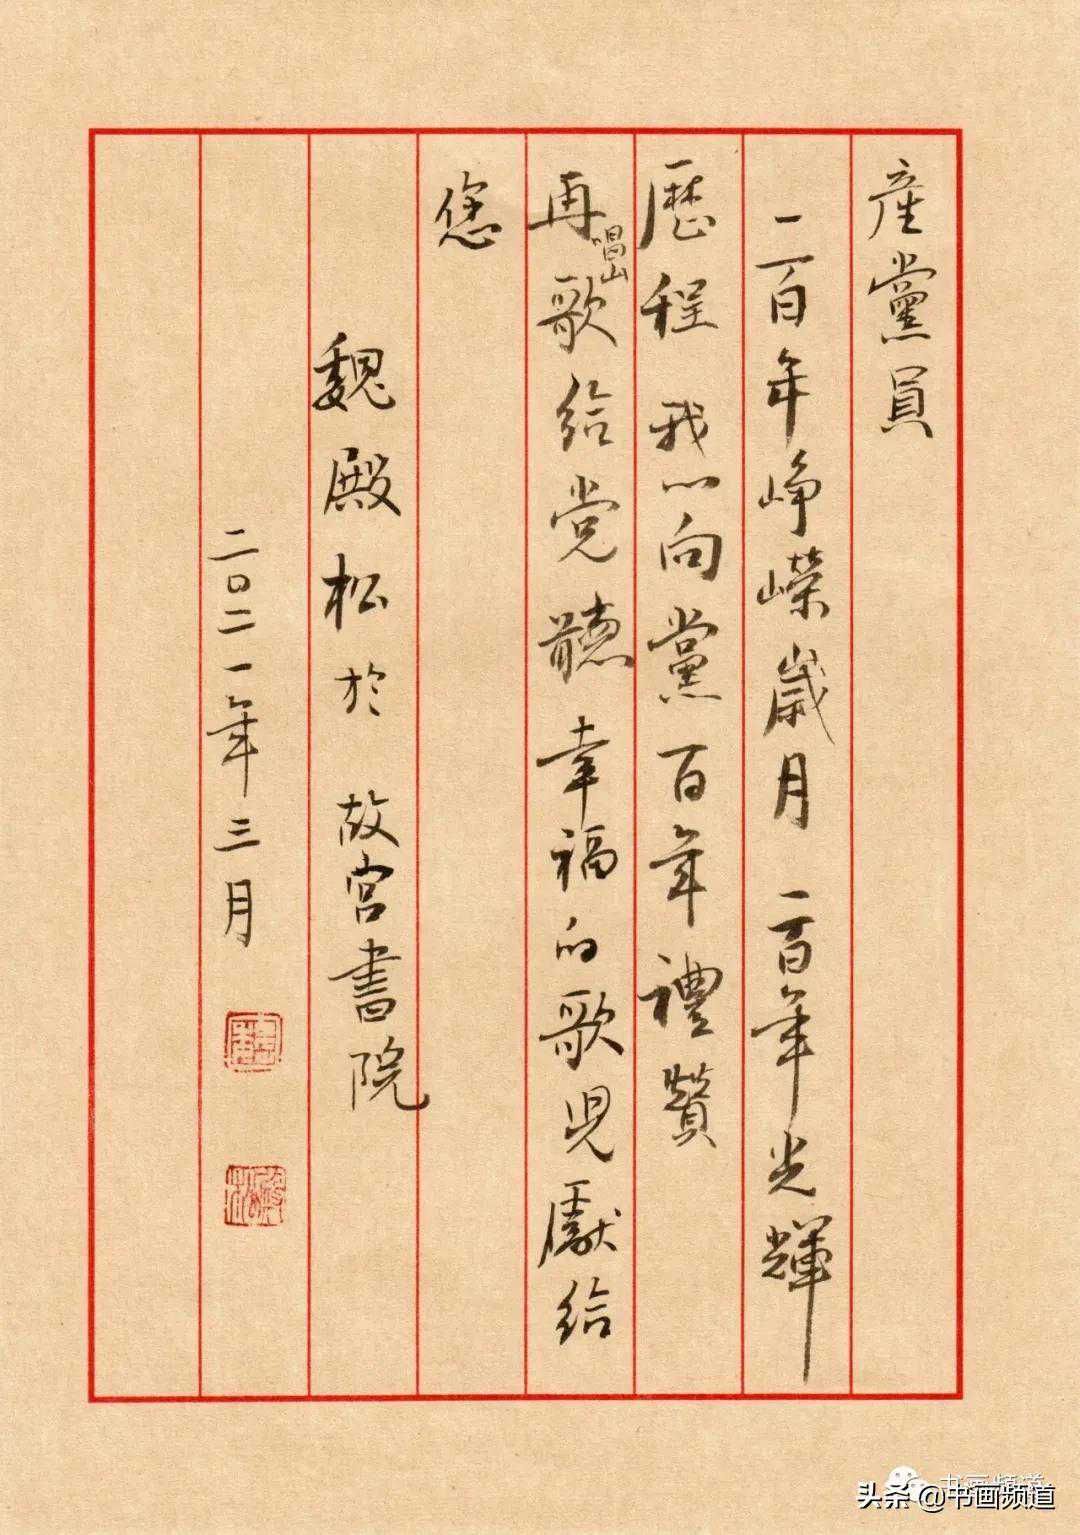 産黨員
一百年崢嶸歲月 一百年光輝
歷程 我心向黨百年禮贊
再唱山歌給党聽幸福的歌兒獻給
您
魏殿松於故宮書院
二〇二一年三月
殿松
书画频道
头条 @书画频道